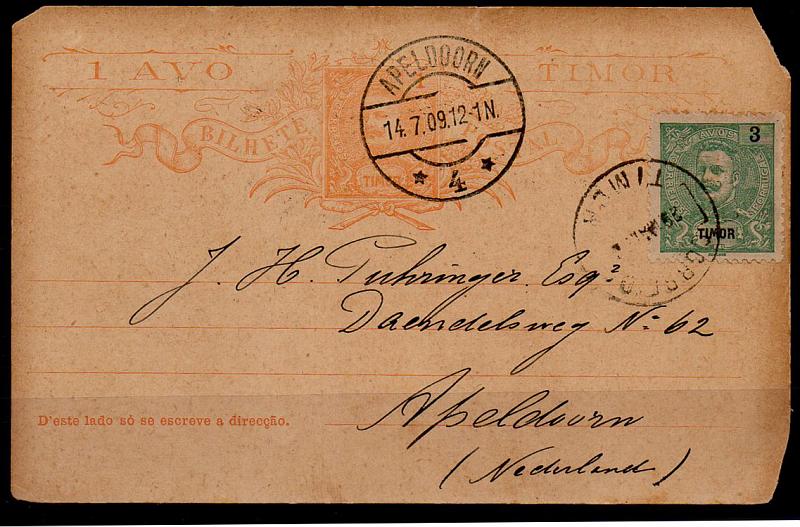 1 AVO TIMOR
BILHETE POSTAL
TIMOR
APELDOORN
14.7.09.12-1N.
4
AVOS
3
TIMOR
TIMOR
CORREIO
J. H. Puhringer Esq.
Daendelsweg No. 62
Apeldoorn
(Nederland)
D'este lado só se escreve a direcção.